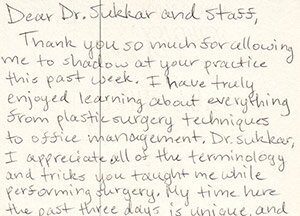 Dear Dr. Sukkar and Staff,
Thank you so much for allowing
me to shadow at your practice
this past week. I have truly
enjoyed learning about everything
from plastic surgery techniques
to office management. Dr. Sukkar,
I appreciate all of the terminology
and tricks you taught me while
performing surgery. My time here
the past three days is unique, and